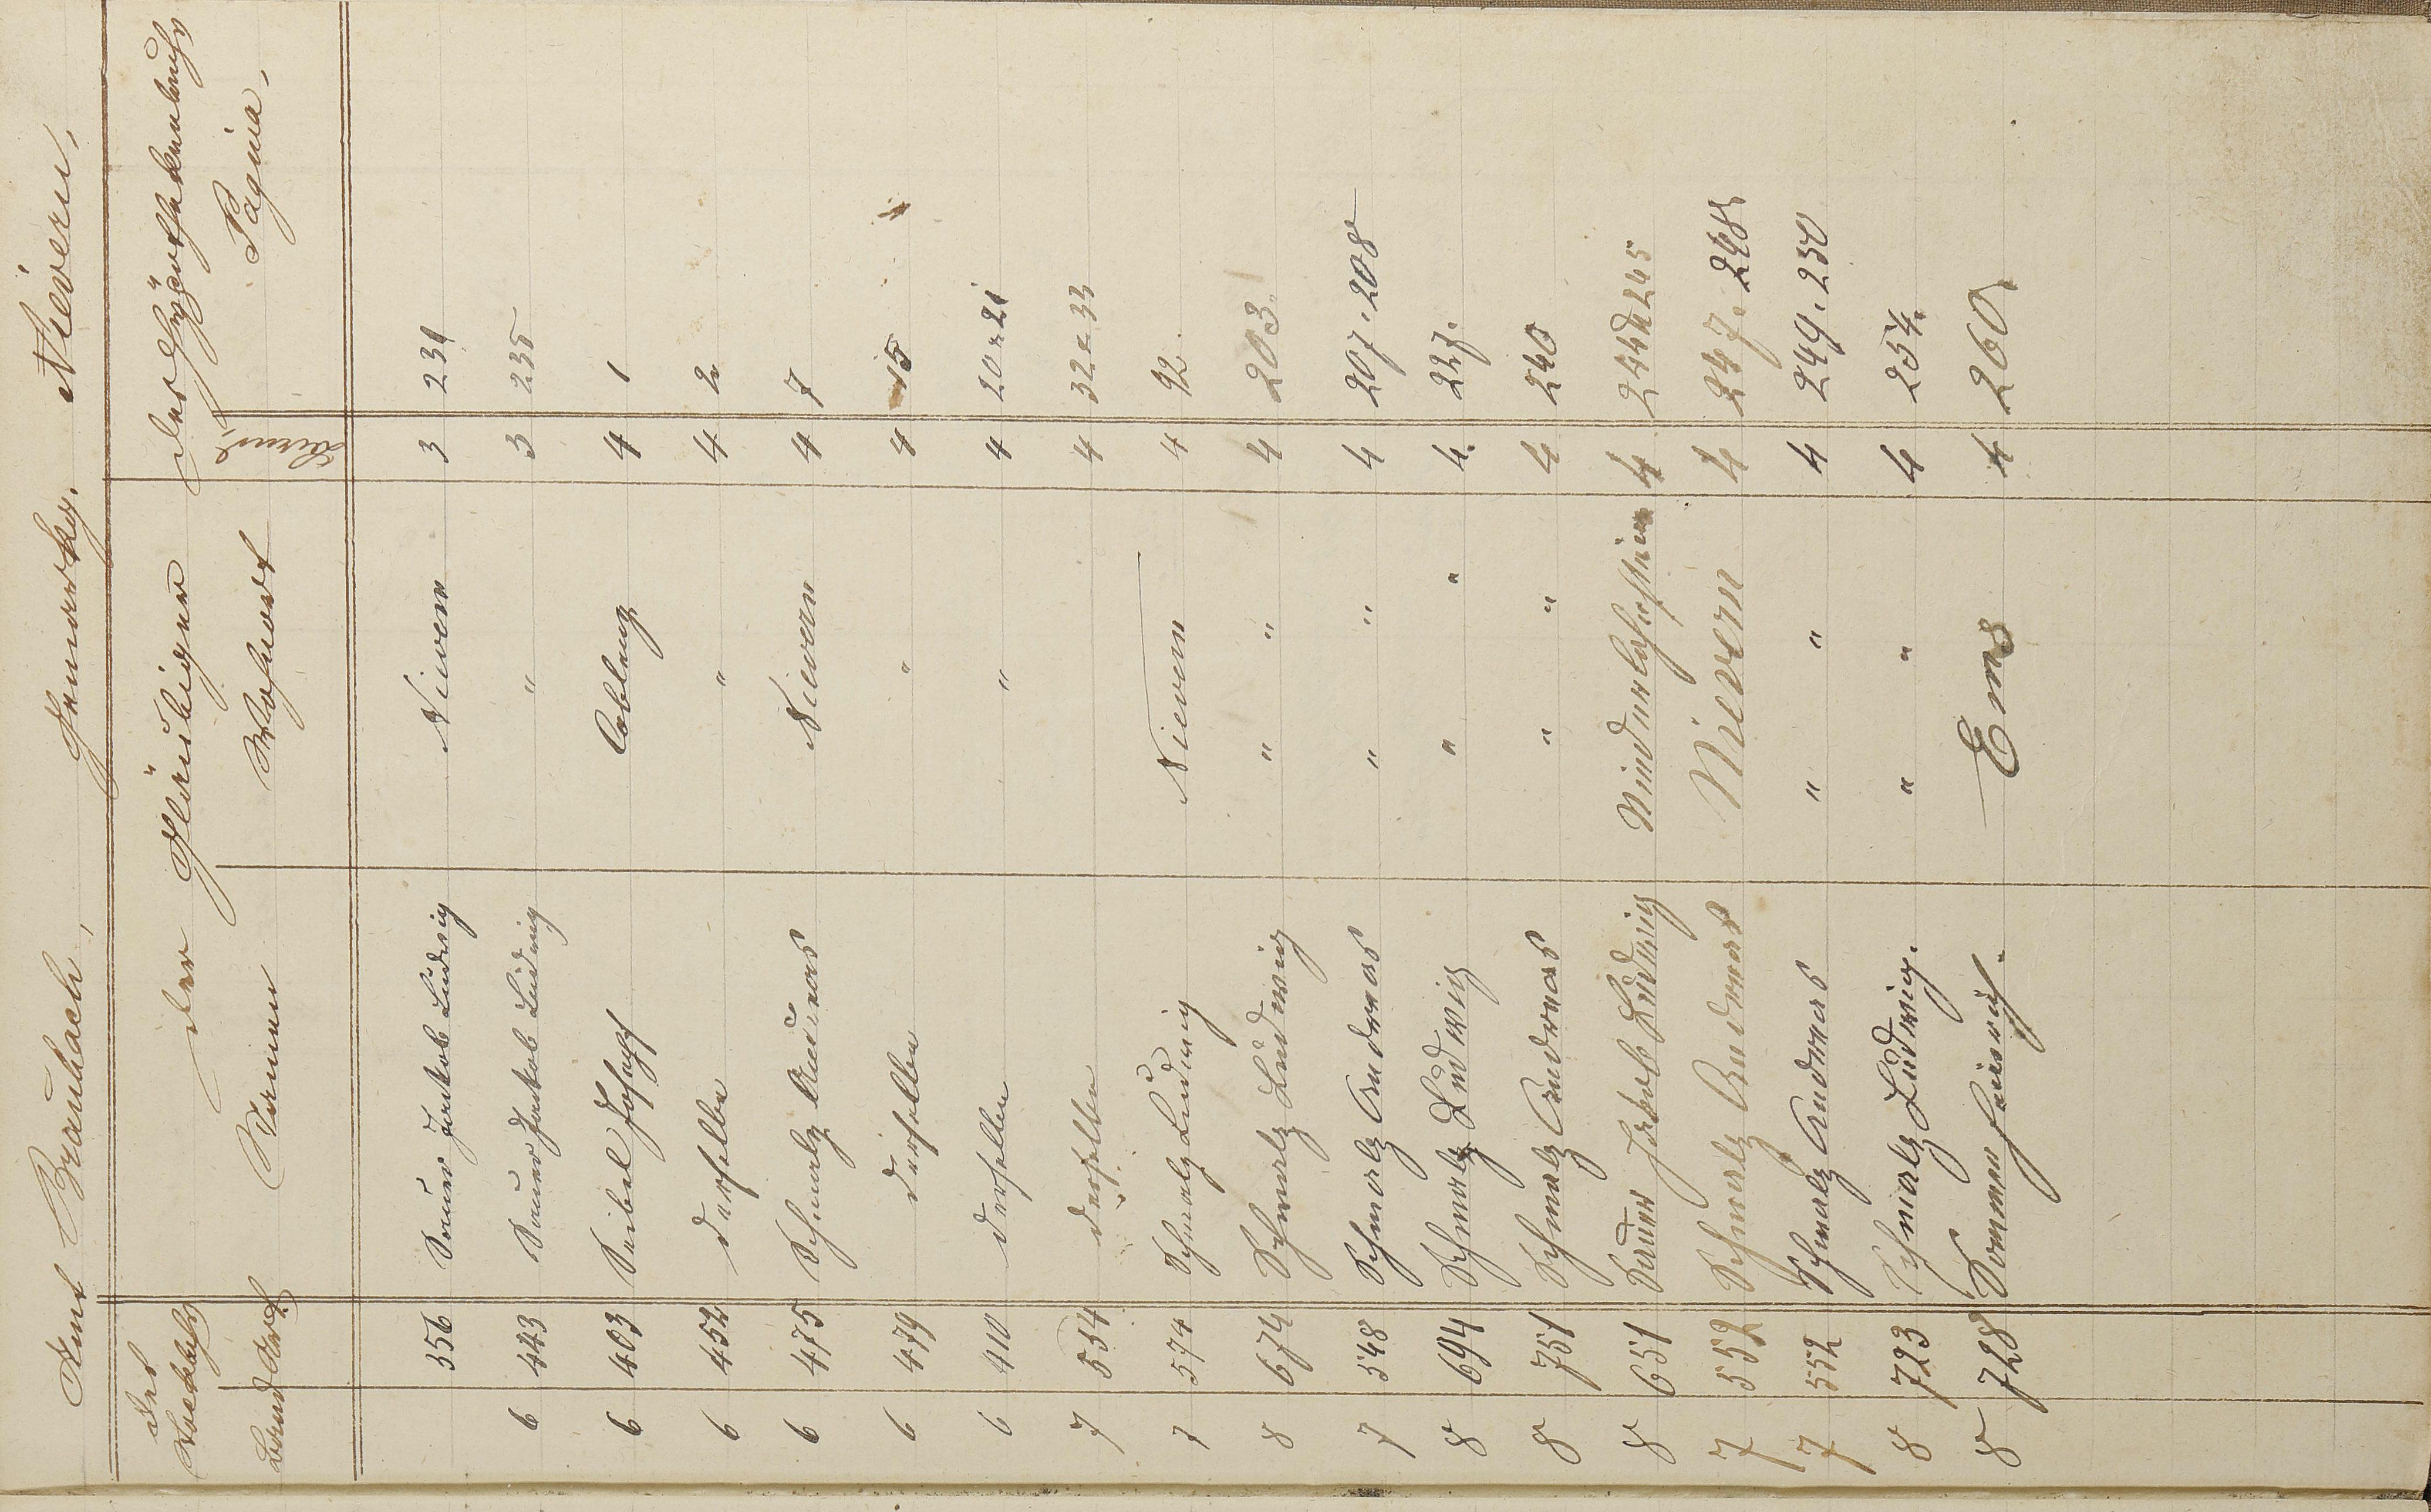 Amt Braubach, Gemarkg. Nievern,
Des Stockbchs der Gläubiger des Hypothekenbuchs
Band Art. Namen Wohnort Band Pagina
356 Sauer Jakob Ludwig Nievern 3 231
6 443 Sauer Jakob Ludwig " 3 235
6 403 Seibel Joseph Coblenz 4 1
6 452 derselbe " 4 2
6 475 Schmalz Andreas Nievern 4 7
6 479 derselbe " 4 15
6 410 derselbe " 4 20 u 21
7 554 derselbe 4 32 u 33
7 574 Schmalz Ludwig Nievern 4 92
8 674 Schmalz Ludwig " " 4 203
7 548 Schmalz Andreas " " 4 207. 208
8 694 Schmalz Ludwig " " 4. 227.
8 751 Schmalz Andreas " " 4 240
8 651 Sauer Jakob Ludwig Niederlahnstein 4 244 u 245
7 552 Schmalz Andreas Nievern 4 247. 248
7 552 Schmalz Andreas " " 4 249. 250
8 723 Schmalz Ludwig. " " 4 254.
8 728 Sommer Heinrich. Ems 4 260